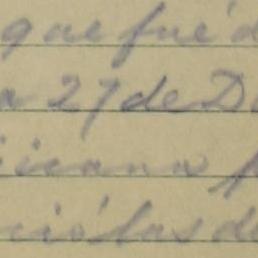 que fué d
a 27 de D
icana
ció las d